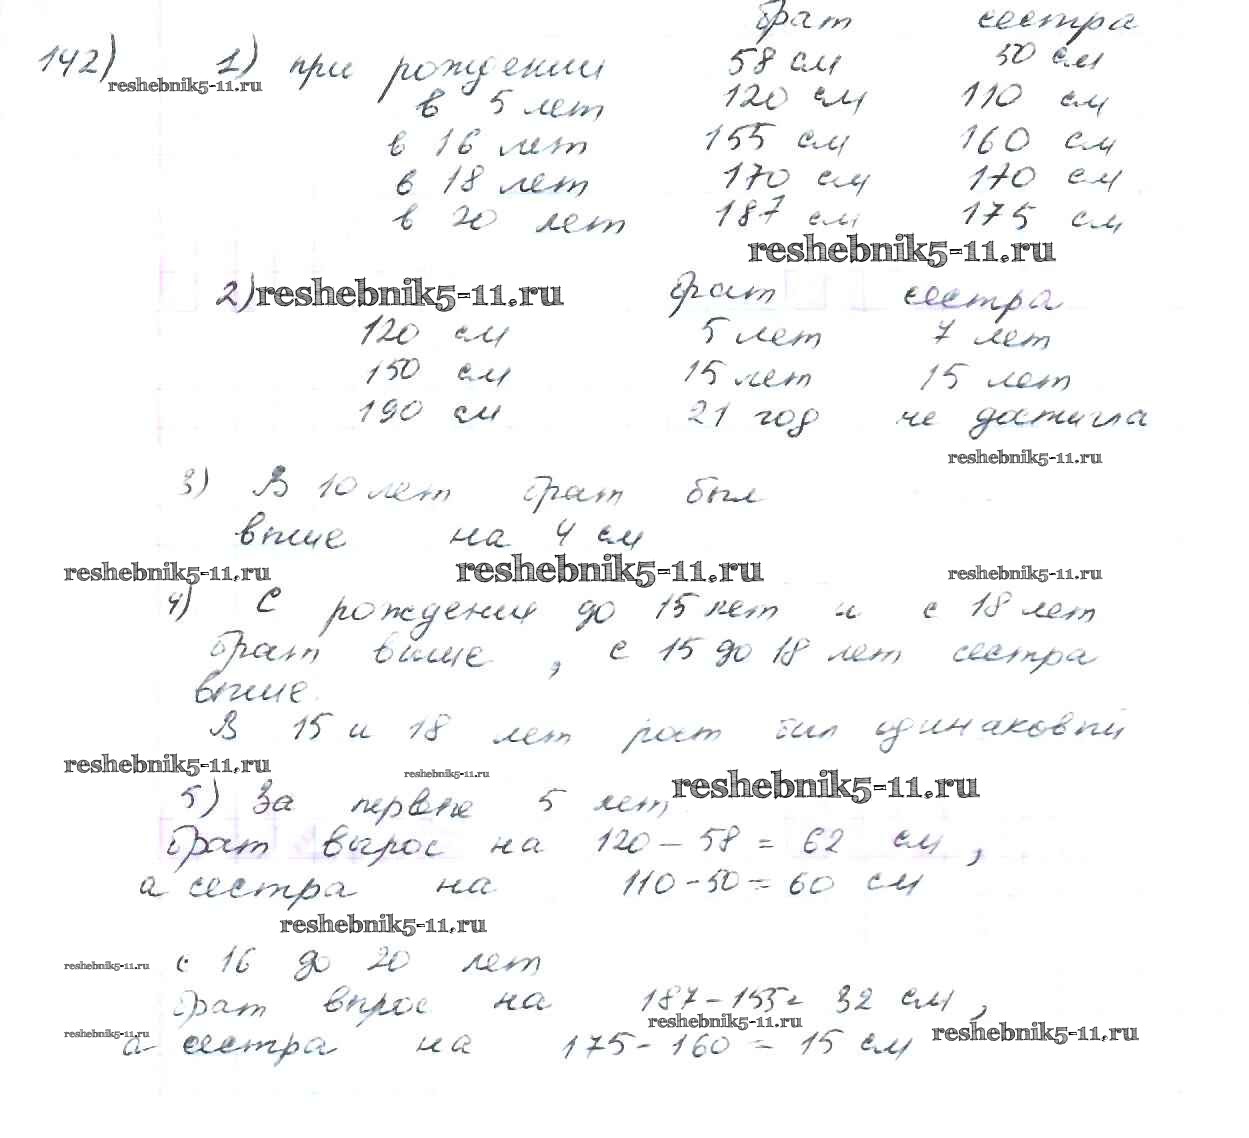 брат сестра
142) 1) при рождении 58 см 50 см
reshebnik5-11.ru
в 5 лет 120 см 110 см
в 16 лет 155 см 160 см
в 18 лет 170 см 170 см
в 20 лет 187 см 175 см
reshebnik5-11.ru
2) reshebnik5-11.ru брат сестра
120 см 5 лет 7 лет
150 см 15 лет 15 лет
190 см 21 год не достигла
reshebnik5-11.ru
3) В 10 лет брат был
выше на 4 см
reshebnik5-11.ru reshebnik5-11.ru reshebnik5-11.ru
4) С рождения до 15 лет и с 18 лет
брат выше, с 15 до 18 лет сестра
выше.
В 15 и 18 лет рост был одинаковый
reshebnik5-11.ru reshebnik5-11.ru reshebnik5-11.ru
5) За первые 5 лет,
брат вырос на 120 - 58 = 62 см,
а сестра на 110 - 50 = 60 см
reshebnik5-11.ru
reshebnik5-11.ru с 16 до 20 лет
брат вырос на 187 - 155 = 32 см,
reshebnik5-11.ru reshebnik5-11.ru reshebnik5-11.ru
а сестра на 175 - 160 = 15 см